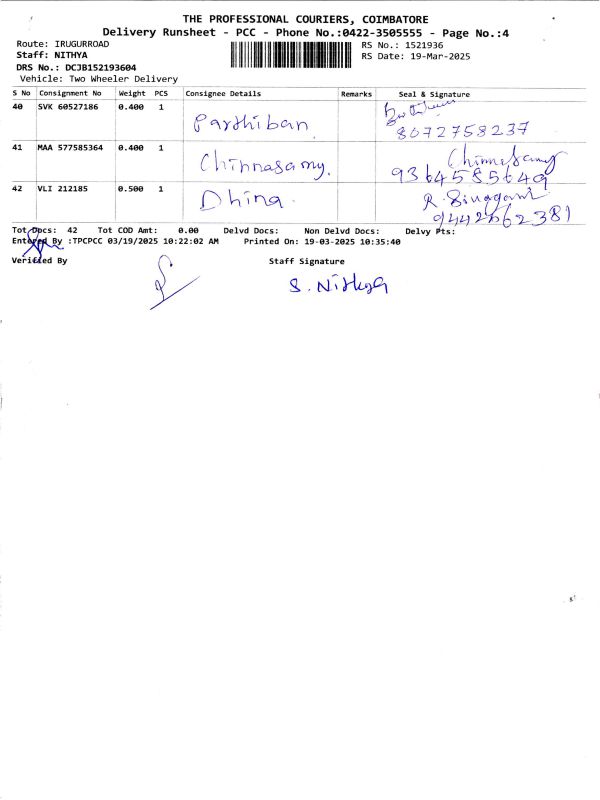 THE PROFESSIONAL COURIERS, COIMBATORE
Delivery Runsheet - PCC - Phone No.:0422-3505555 - Page No.:4
Route: IRUGURROAD RS No.: 1521936
Staff: NITHYA RS Date: 19-Mar-2025
DRS No.: DCJB152193604
Vehicle: Two Wheeler Delivery
S No Consignment No Weight PCS Consignee Details Remarks Seal & Signature
40 SVK 60527186 0.400 1 Parthiban 8072758237
41 MAA 577585364 0.400 1 Chinnasamy. Chinnasamy
9364585649
42 VLI 212185 0.500 1 Dhina. R.
9442662381
Tot Docs: 42 Tot COD Amt: 0.00 Delvd Docs: Non Delvd Docs: Delvy Pts:
Entered By :TPCPCC 03/19/2025 10:22:02 AM Printed On: 19-03-2025 10:35:40
Verified By Staff Signature
S. Nithya